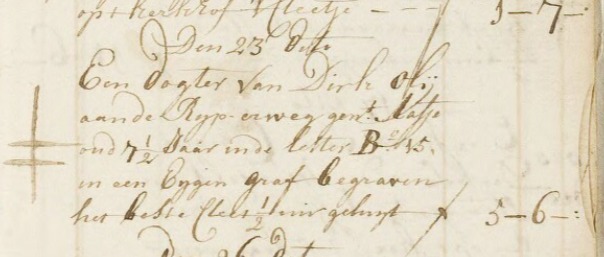 opt kerkhof t Cleetje - - - 1-7-
Den 23 dito
Een dogter van Dirk Olij
aande Rijp-erweg gent. Aatje
oud 7½ Jaar inde letter B No 15.
in een Eygen graf begraven
het beste Cleet ½ uur geluijt f 5-6-:
Den 26 dt